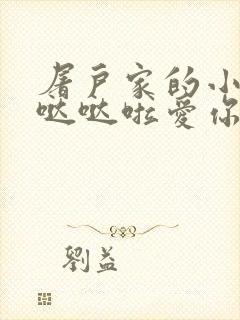 屠户家的小
哒哒啦爱你
劉益